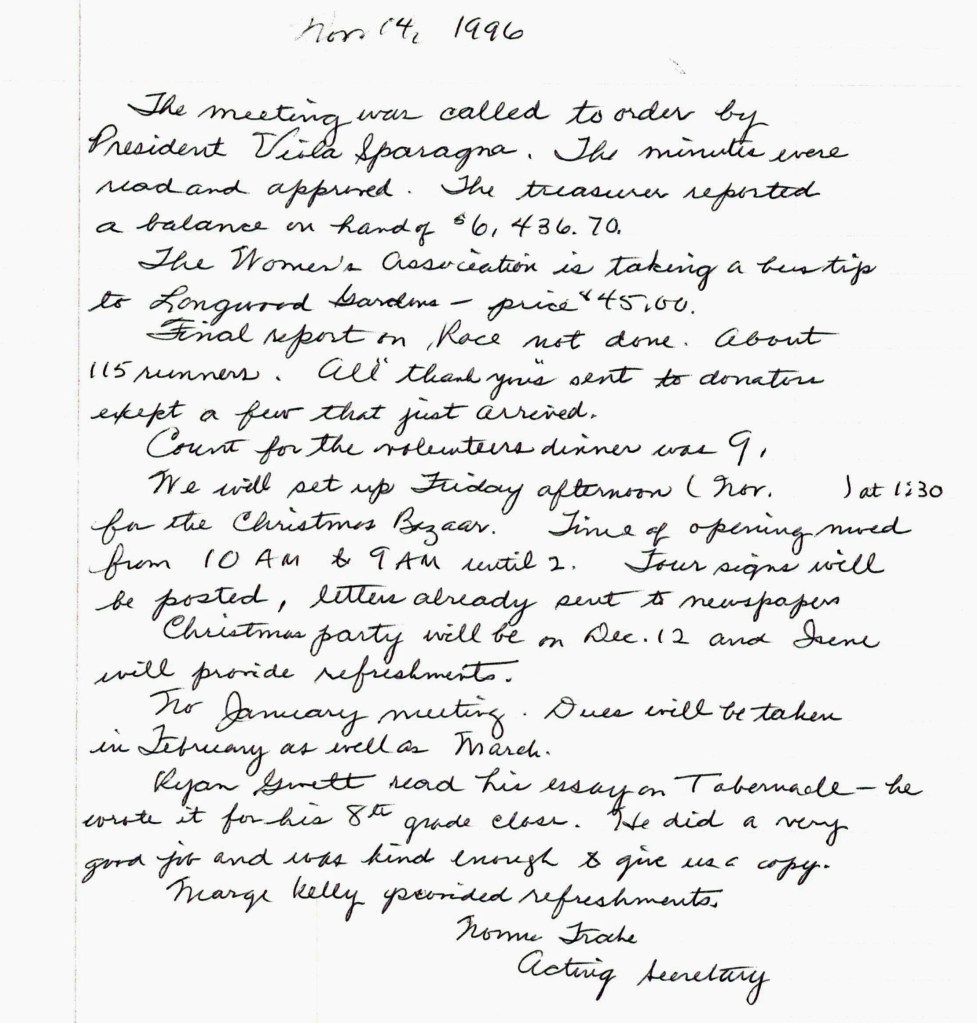 Nov 14, 1996
The meeting was called to order by
President Viola Sparagna. The minutes were
read and approved. The treasurer reported
a balance on hand of $6,436.70.
The Women's Association is taking a bus tip
to Longwood Gardens – price $45.00.
Final report on Race not done. About
115 runners. All "thank yous" sent to donators
exept a few that just arrived.
Count for the volunteers dinner was 9.
We will set up Friday afternoon (Nov. ) at 1:30
for the Christmas Bazaar. Time of opening moved
from 10 AM to 9 AM until 2. Four signs will
be posted, letters already sent to newspapers
Christmas party will be on Dec. 12 and Irene
will provide refreshments.
No January meeting. Dues will be taken
in February as well as March.
Ryan read his essay on Tabernacle – he
wrote it for his 8th grade class. He did a very
good job and was kind enough to give us a copy.
Marge Kelly provided refreshments.
Acting Secretary